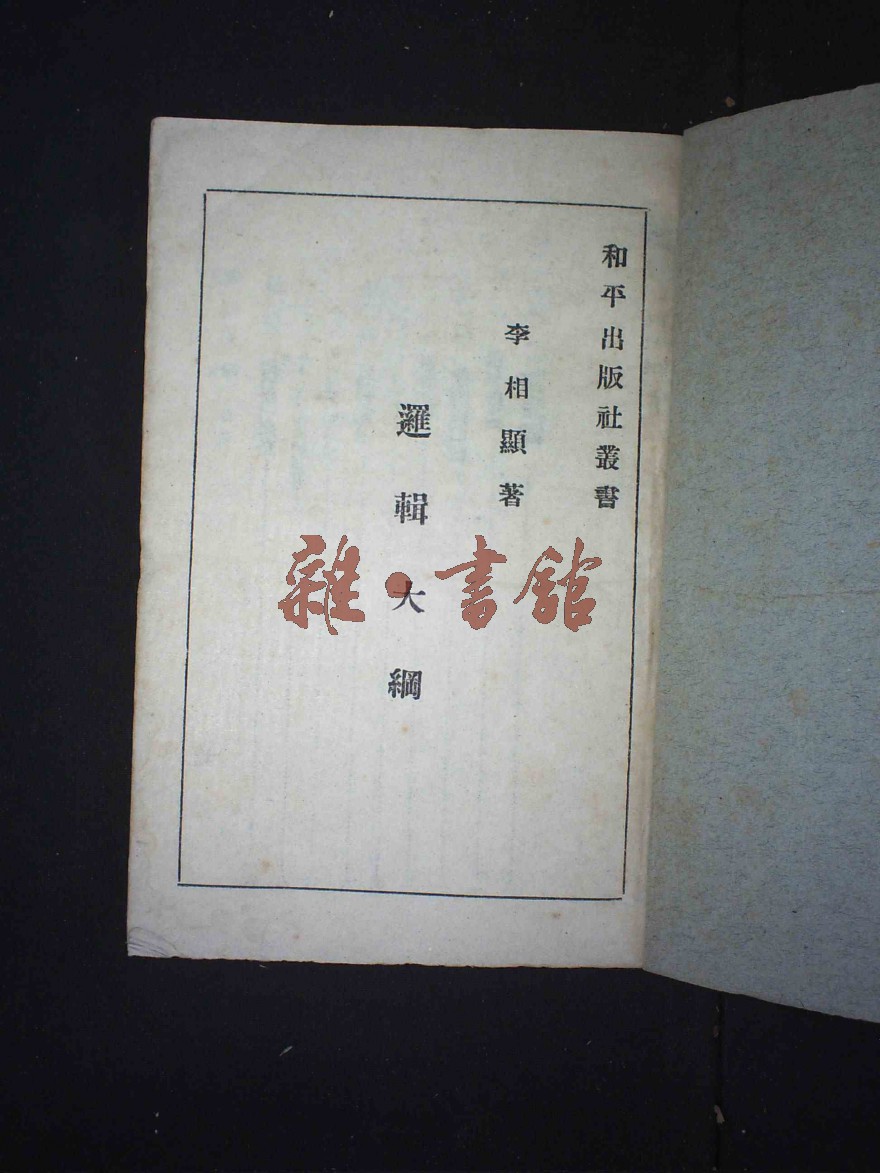 和平出版社叢書
李相顯著
邏輯大綱
雜·書館